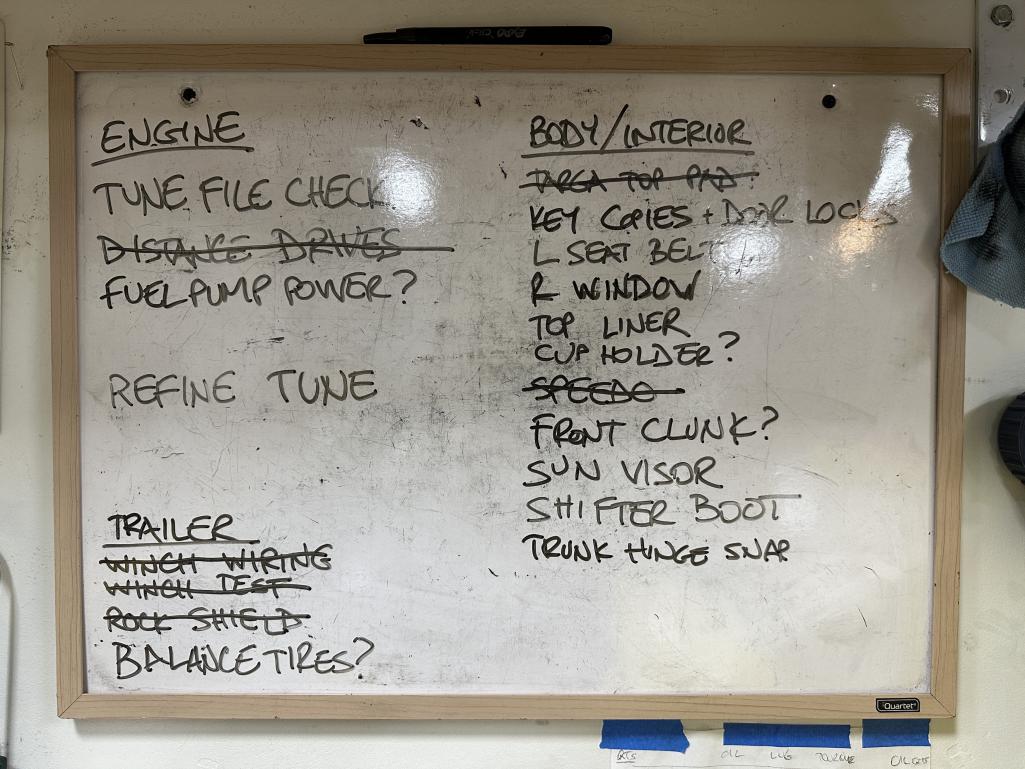 ENGINE
TUNE FILE CHECK
DISTANCE DRIVES
FUEL PUMP POWER?
REFINE TUNE
TRAILER
WINCH WIRING
WINCH TEST
ROCK SHIELD
BALANCE TIRES?
BODY/INTERIOR
TARGA TOP PAD
KEY COPIES + DOOR LOCKS
L SEAT BELT
R WINDOW
TOP LINER
CUP HOLDER?
SPEEDO
FRONT CLUNK?
SUN VISOR
SHIFTER BOOT
TRUNK HINGE SNAP
Quartet
OIL LUG TORQUE